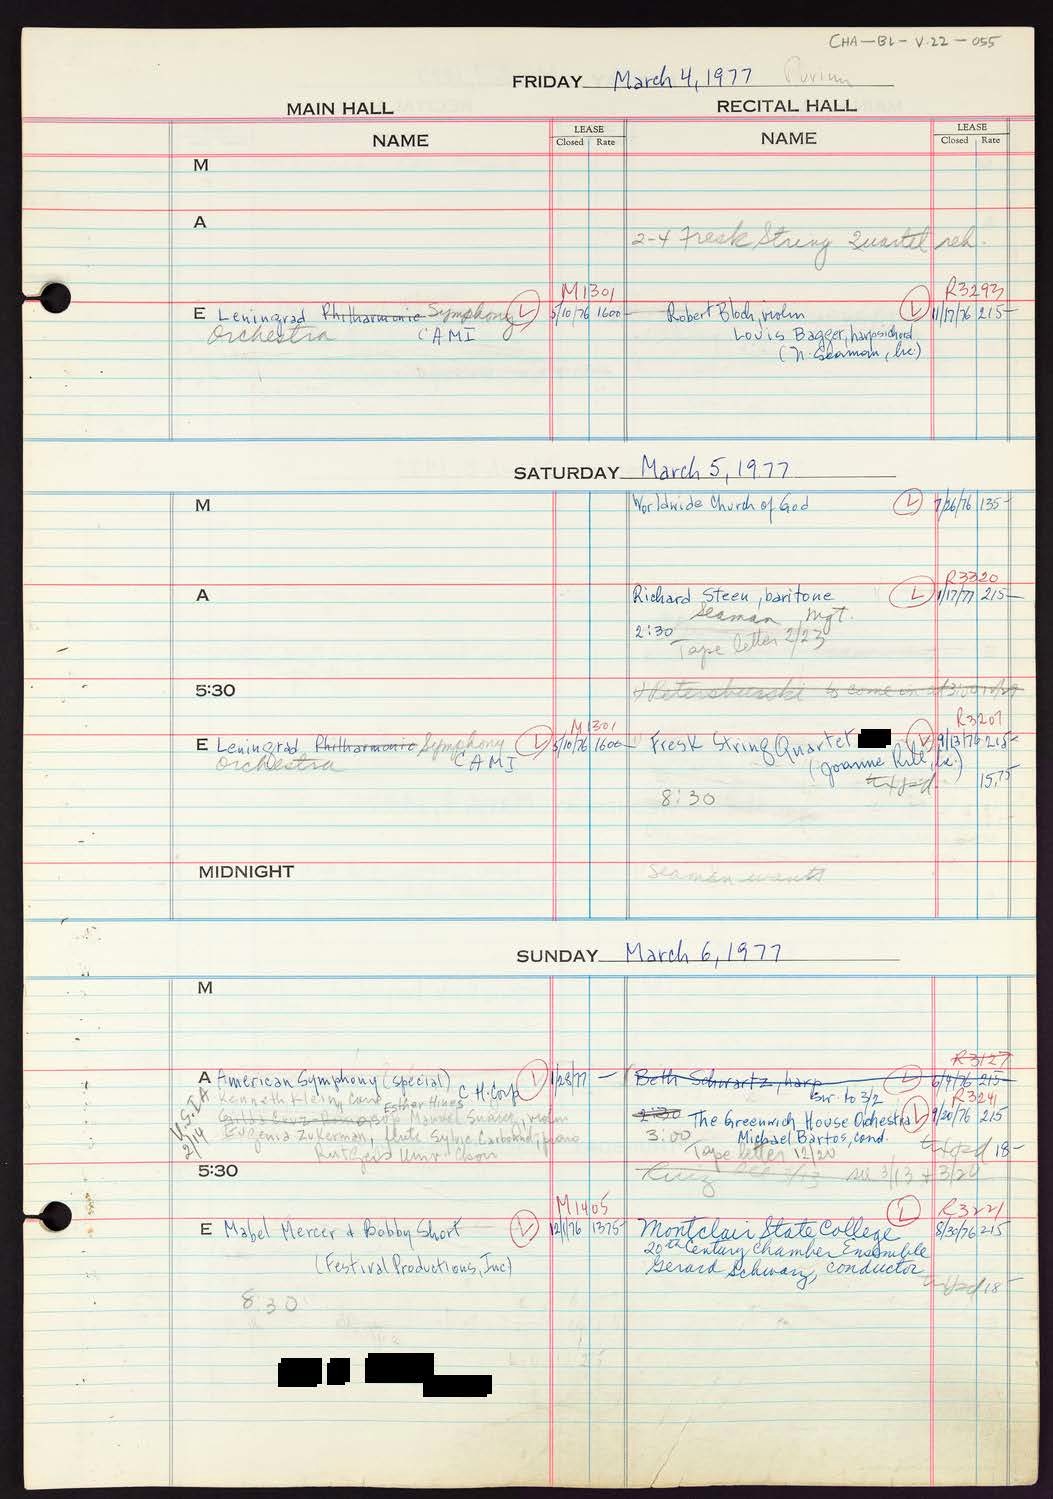 CHA-BL-V.22-055
FRIDAY March 4, 1977 Purim
MAIN HALL
RECITAL HALL
NAME
LEASE
Closed Rate
NAME
LEASE
Closed Rate
M
A
2-4 Fresk String Quartet reh.
M1301
E Leningrad Philharmonic Symphony L 5/10/76 1600-
Orchestra CAMI
R3293
Robert Bloch, violin L 11/17/76 215-
Louis Bagger, harpsichord
(N. Seaman, Inc.)
SATURDAY March 5, 1977
M
Worldwide Church of God L 7/26/76 135-
A
R3320
Richard Steen, baritone L 1/17/77 215-
Seaman Mgt.
2:30
Tape letter 2/23
5:30
Petersburski to come in at 3:00
M1301
E Leningrad Philharmonic Symphony L 5/10/76 1600-
Orchestra CAMI
R3207
Fresk String Quartet L 9/13/76 215-
(Joanne Rile, Inc.)
15.75
8:30
MIDNIGHT
Seaman wants
SUNDAY March 6, 1977
M
A American Symphony (special) L 1/28/77 -
C.H. Corp
Kenneth Klein, Cond. Esther Hines
sop Manuel Suarez, violin
Eugenia Zukerman, flute Sylvie Carbonel, piano
Rutgers Univ. Choir
2/14
R3127
Beth Schwartz, harp L 6/9/76 215-
Sw. to 3/2
R3241
2:30 The Greenwich House Orchestra L 9/20/76 215
3:00 Michael Bartos, cond.
Tape letter 12/20
18-
5:30
Ruiz see 3/13 + 3/20
M1405
E Mabel Mercer & Bobby Short L 12/1/76 1375-
(Festival Productions, Inc)
8:30
R3221
Montclair State College L 8/30/76 215
20th Century Chamber Ensemble
Gerard Schwarz, conductor
18-